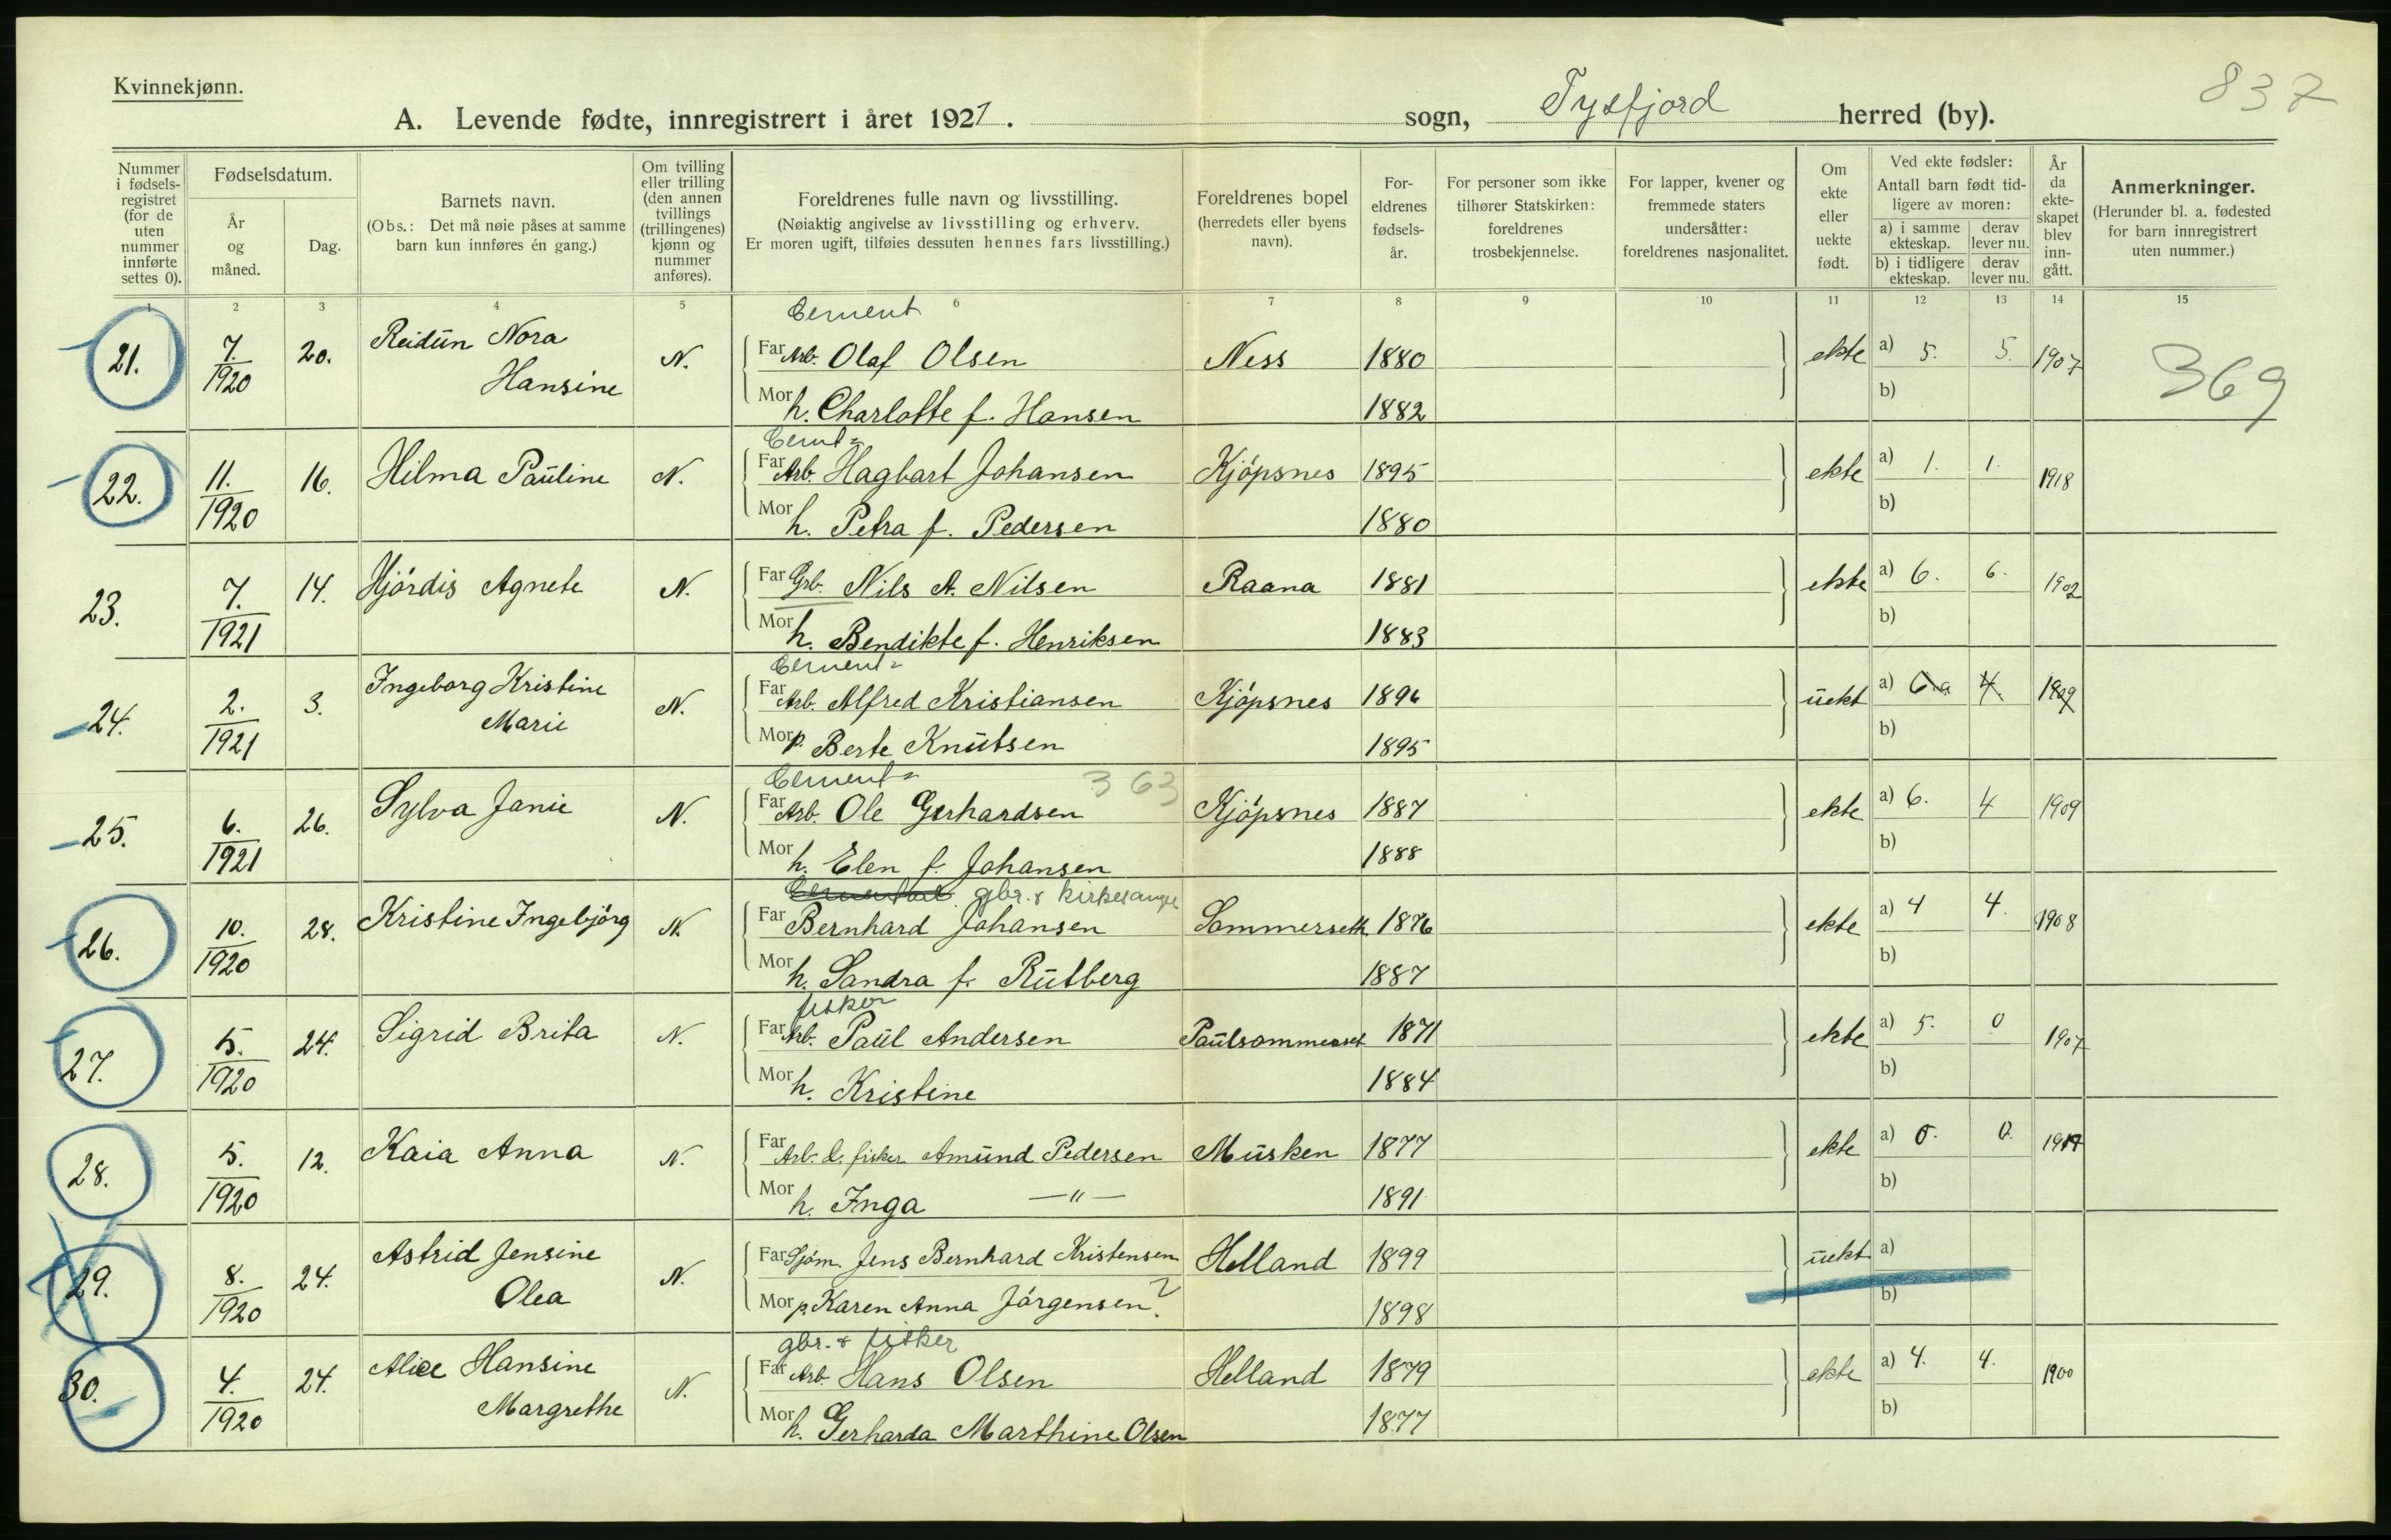 Kvinnekjønn.
837
A. Levende fødte, innregistrert i året 1921. sogn, Tysfjord herred (by).
Nummer i fødsels-registret (for de uten nummer innførte settes 0).
Fødselsdatum.
År og måned.
Dag.
Barnets navn.
(Obs.: Det må nøie påses at samme barn kun innføres én gang.)
Om tvilling eller trilling (den annen tvillings (trillingenes) kjønn og nummer anføres).
Foreldrenes fulle navn og livsstilling.
(Nøiaktig angivelse av livsstilling og erhverv.
Er moren ugift, tilføies dessuten hennes fars livsstilling.)
Foreldrenes bopel
(herredets eller byens navn).
For-eldrenes fødsels-år.
For personer som ikke tilhører Statskirken: foreldrenes trosbekjennelse.
For lapper, kvener og fremmede staters undersåtter: foreldrenes nasjonalitet.
Om ekte eller uekte født.
Ved ekte fødsler:
Antall barn født tid-ligere av moren:
a) i samme ekteskap. derav lever nu.
b) i tidligere ekteskap. derav lever nu.
År da ekte-skapet blev inn-gått.
Anmerkninger.
(Herunder bl. a. fødested for barn innregistrert uten nummer.)
1 2 3 4 5 6 7 8 9 10 11 12 13 14 15
Cement
21. 7. 1920 20. Reidun Nora Hansine N. Far Arb. Olaf Olsen Ness 1880 ekte a) 5. 5. 1907 369
Mor h. Charlotte f. Hansen 1882 b)
Cemt=
22. 11. 1920 16. Hilma Pauline N. Far Arb. Hagbart Johansen Kjöpsnes 1895 ekte a) 1. 1. 1918
Mor h. Petra f. Pedersen 1880 b)
23. 7. 1921 14. Hjördis Agnete N. Far Grb. Nils A. Nilsen Raana 1881 ekte a) 6. 6. 1902
Mor h. Bendikte f. Henriksen 1883 b)
Cement=
24. 2. 1921 3. Ingeborg Kristine Marie N. Far Arb. Alfred Kristiansen Kjöpsnes 1896 uekt a) 6. 4. 1909
Mor p. Berte Knutsen 1895 b)
Cement= 363
25. 6. 1921 26. Sylva Janie N. Far Arb. Ole Gerhardsen Kjöpsnes 1887 ekte a) 6. 4 1909
Mor h. Elen f. Johansen 1888 b)
gbr. & kirkesanger
26. 10. 1920 28. Kristine Ingebjörg N. Far Bernhard Johansen Sommerseth 1876 ekte a) 4 4. 1908
Mor h. Sandra f. Rutberg 1887 b)
fisker
27. 5. 1920 24. Sigrid Brita N. Far Arb. Paul Andersen Paulsommerset 1871 ekte a) 5. 0 1907
Mor h. Kristine 1884 b)
28. 5. 1920 12. Kaia Anna N. Far Arb. & fisker Amund Pedersen Musken 1877 ekte a) 0. 0. 1919
Mor h. Inga —"— 1891 b)
29. 8. 1920 24. Astrid Jensine Olea N. Far Sjöm. Jens Bernhard Kristensen Helland 1899 uekt a)
Mor p. Karen Anna Jörgensen. ? 1898 b)
gbr. & fisker
30. 4. 1920 24. Alice Hansine Margrethe N. Far Arb. Hans Olsen Helland 1879 ekte a) 4. 4. 1900
Mor h. Gerharda Marthine Olsen 1877 b)